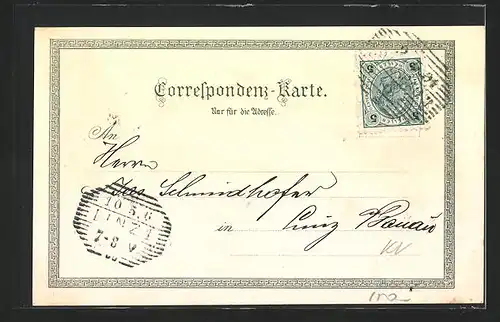 Correspondenz-Karte.
Nur für die Adresse.
An
Herrn
Jos Schmidhofer
in Linz Donau
10 5 6
LINZ 1
7-8 V
5 5
5 5